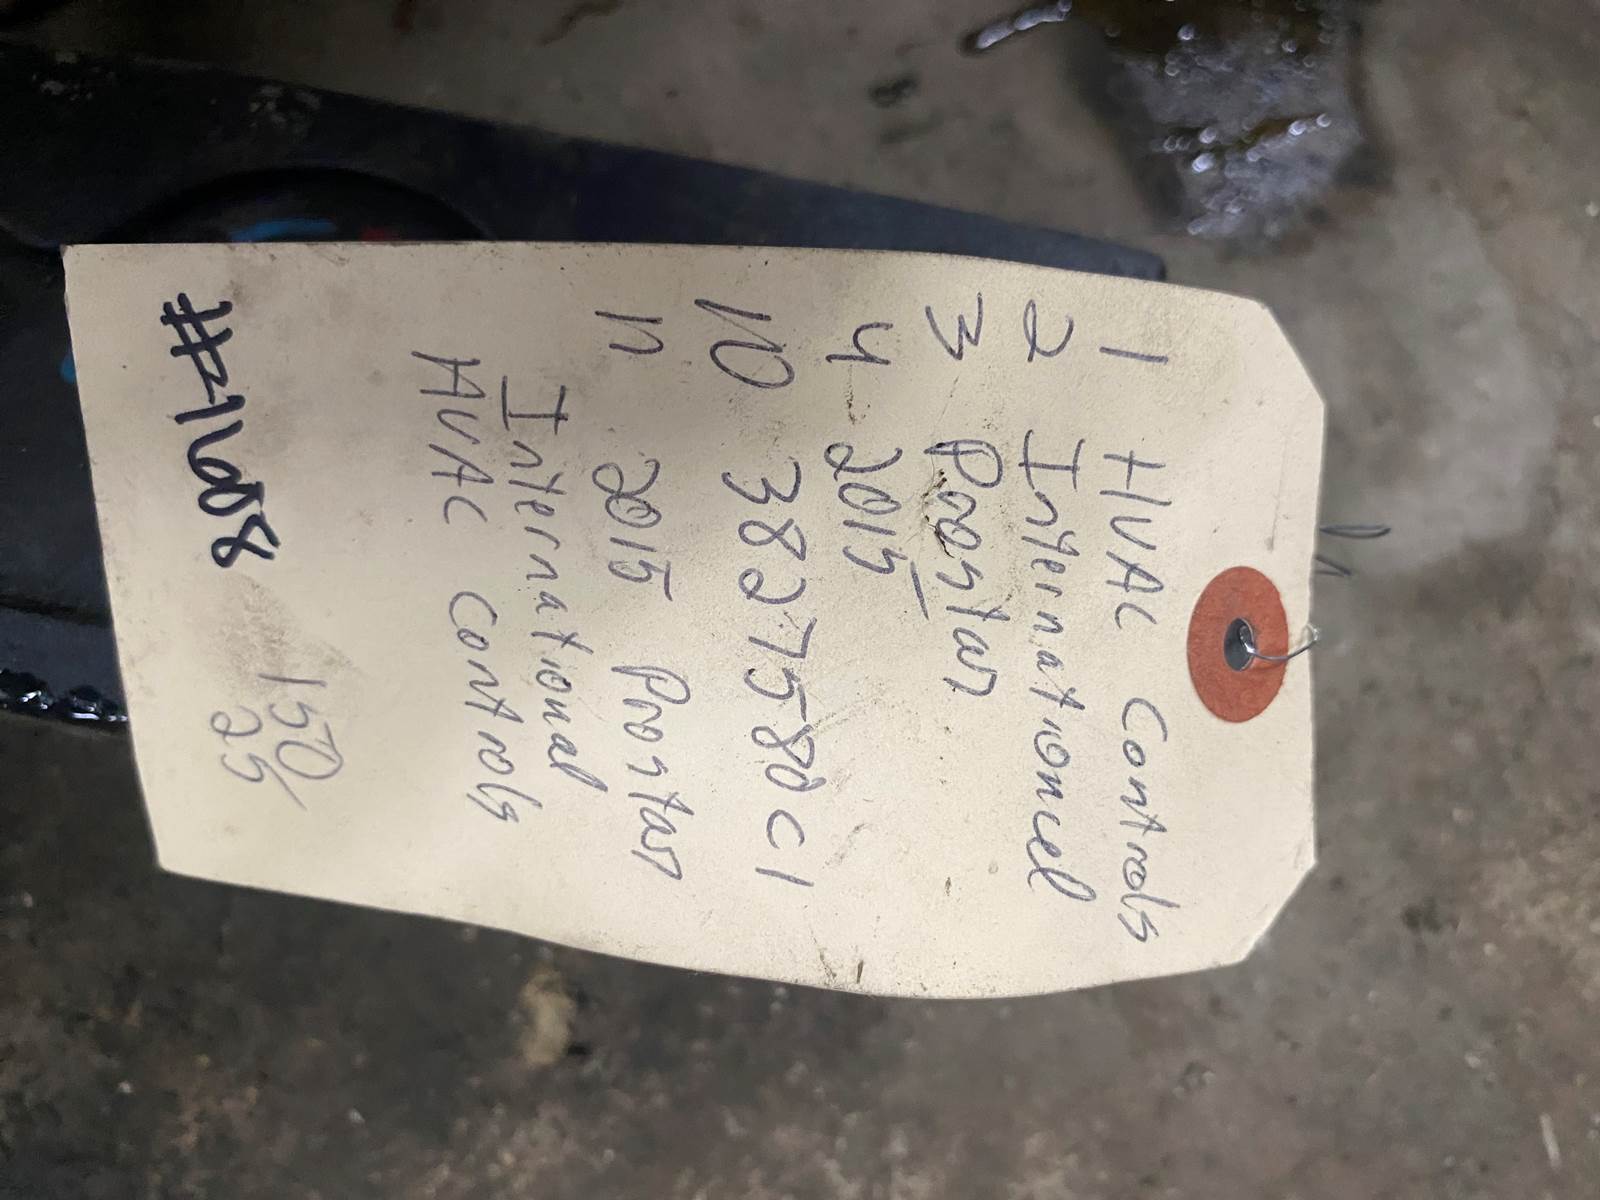 1 HVAC Controls
2 International
3 Prostar
4 2015
10 3827580C1
11 2015 Prostar
International
HVAC Controls
150
25
#1608